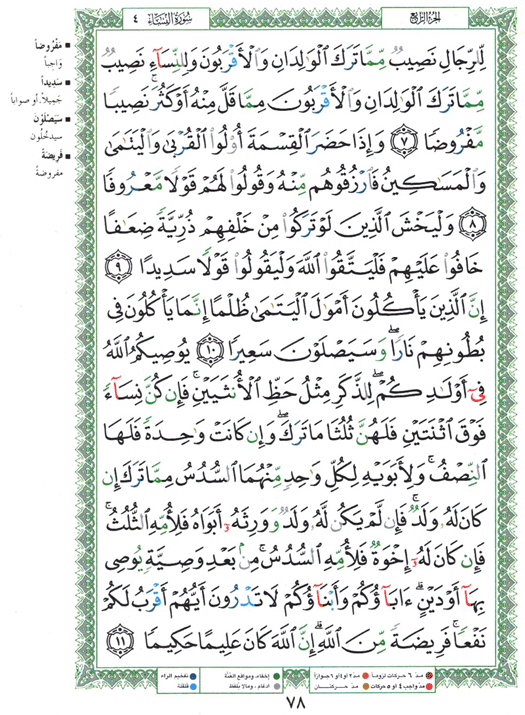 الجزء الرابع
سورة النساء ٤
لِّلرِّجَالِ نَصِيبٌ مِّمَّا تَرَكَ الْوَالِدَانِ وَالْأَقْرَبُونَ وَلِلنِّسَاءِ نَصِيبٌ
مِّمَّا تَرَكَ الْوَالِدَانِ وَالْأَقْرَبُونَ مِمَّا قَلَّ مِنْهُ أَوْ كَثُرَ ۚ نَصِيبًا
مَّفْرُوضًا ﴿٧﴾ وَإِذَا حَضَرَ الْقِسْمَةَ أُولُوا الْقُرْبَىٰ وَالْيَتَامَىٰ
وَالْمَسَاكِينُ فَارْزُقُوهُم مِّنْهُ وَقُولُوا لَهُمْ قَوْلًا مَّعْرُوفًا
﴿٨﴾ وَلْيَخْشَ الَّذِينَ لَوْ تَرَكُوا مِنْ خَلْفِهِمْ ذُرِّيَّةً ضِعَافًا
خَافُوا عَلَيْهِمْ فَلْيَتَّقُوا اللَّهَ وَلْيَقُولُوا قَوْلًا سَدِيدًا ﴿٩﴾
إِنَّ الَّذِينَ يَأْكُلُونَ أَمْوَالَ الْيَتَامَىٰ ظُلْمًا إِنَّمَا يَأْكُلُونَ فِي
بُطُونِهِمْ نَارًا ۖ وَسَيَصْلَوْنَ سَعِيرًا ﴿١٠﴾ يُوصِيكُمُ اللَّهُ
فِي أَوْلَادِكُمْ ۖ لِلذَّكَرِ مِثْلُ حَظِّ الْأُنثَيَيْنِ ۚ فَإِن كُنَّ نِسَاءً
فَوْقَ اثْنَتَيْنِ فَلَهُنَّ ثُلُثَا مَا تَرَكَ ۖ وَإِن كَانَتْ وَاحِدَةً فَلَهَا
النِّصْفُ ۚ وَلِأَبَوَيْهِ لِكُلِّ وَاحِدٍ مِّنْهُمَا السُّدُسُ مِمَّا تَرَكَ إِن
كَانَ لَهُ وَلَدٌ ۚ فَإِن لَّمْ يَكُن لَّهُ وَلَدٌ وَوَرِثَهُ أَبَوَاهُ فَلِأُمِّهِ الثُّلُثُ ۚ
فَإِن كَانَ لَهُ إِخْوَةٌ فَلِأُمِّهِ السُّدُسُ ۚ مِن بَعْدِ وَصِيَّةٍ يُوصِي
بِهَا أَوْ دَيْنٍ ۗ آبَاؤُكُمْ وَأَبْنَاؤُكُمْ لَا تَدْرُونَ أَيُّهُمْ أَقْرَبُ لَكُمْ
نَفْعًا ۚ فَرِيضَةً مِّنَ اللَّهِ ۗ إِنَّ اللَّهَ كَانَ عَلِيمًا حَكِيمًا ﴿١١﴾
■ مَفْرُوضاً
وَاجباً
■ سَدِيداً
جَميلاً، أو صواباً
■ سَيَصْلَوْنَ
سيدخُلُون
■ فَرِيضَةً
مفروضةً
مدّ ٦ حركات لزوماً
مدّ ٢ أو ٤ أو ٦ جوازاً
مدّ واجب ٤ أو ٥ حركات
مدّ حركتـــان
إخفاء، ومواقع الغنّة
إدغام، وما لا يُلفظ
تفخيم الراء
قلقلة
٧٨